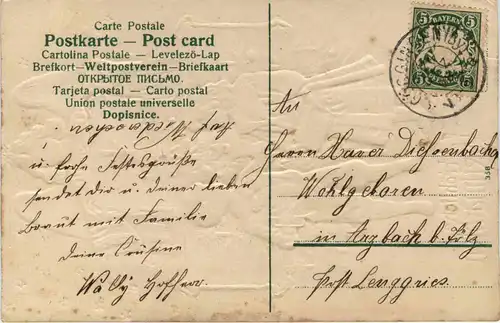 Carte Postale
Postkarte — Post card
Cartolina Postale — Levelező-Lap
Brefkort — Weltpostverein — Briefkaart
ОТКРЫТОЕ ПИСЬМО.
Tarjeta postal — Carto postal
Union postale universelle
Dopisnice.
Auf Wiedersehen
u. frohe Festesgrüße
sendet dir u. deiner lieben
Braut mit Familie
deine Cousine
Wally
5 BAYERN 5
5 5
An
Herrn Xaver Diessenbacher
Wohlgeboren
in Arzbach b. Tölz
Post Lenggries.